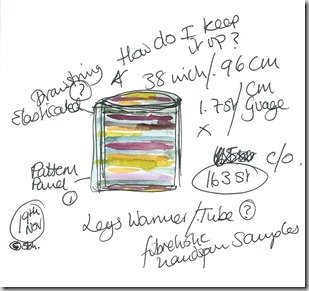 How do I keep
it up?
Drawstring
?
Elasticated
38 inch/.96 cm
1.7st/cm
Guage
X
c/o.
163st
Pattern
Panel
1
19th
Nov
Legs Warmer/Tube ?
fibreholic
handspun samples